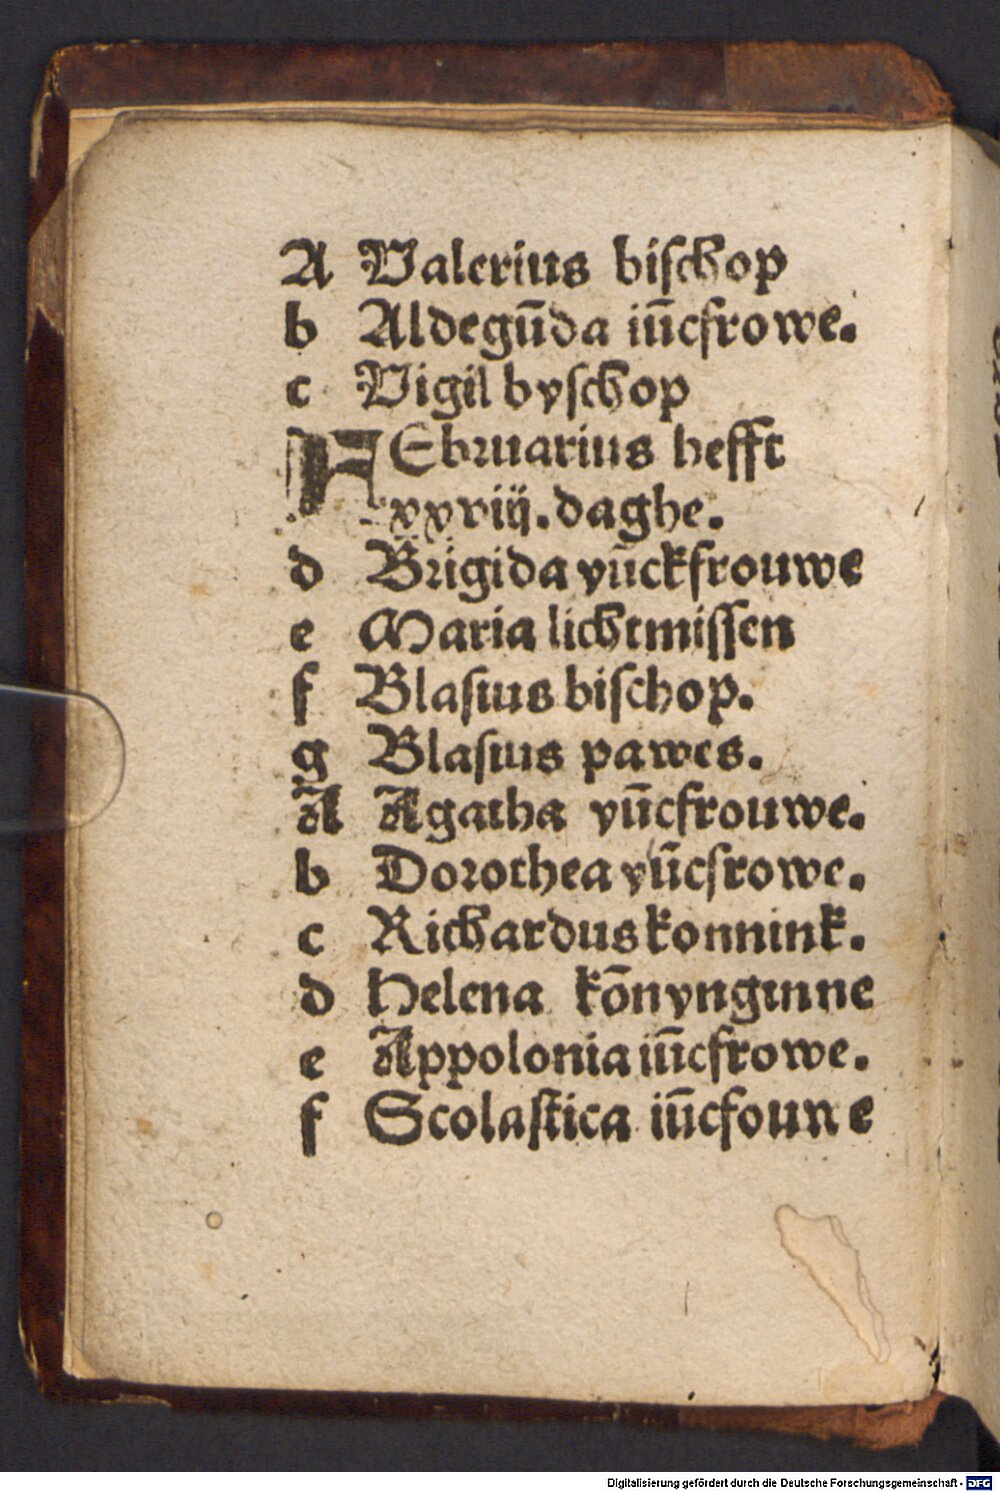 A Valerius biſchop
b Aldegūda iūcfrowe.
c Vigil byſchop
FEbruarius hefft
xxviij. daghe.
d Brigida yūckfrouwe
e Maria lichtmiſſen
f Blaſius biſchop.
g Blaſius pawes.
A Agatha yūcfrouwe.
b Dorothea yūcfrowe.
c Richardus konnink.
d Helena kōnynginne
e Appolonia iūcfrowe.
f Scolaſtica iūcfoune
Digitalisierung gefördert durch die Deutsche Forschungsgemeinschaft - DFG